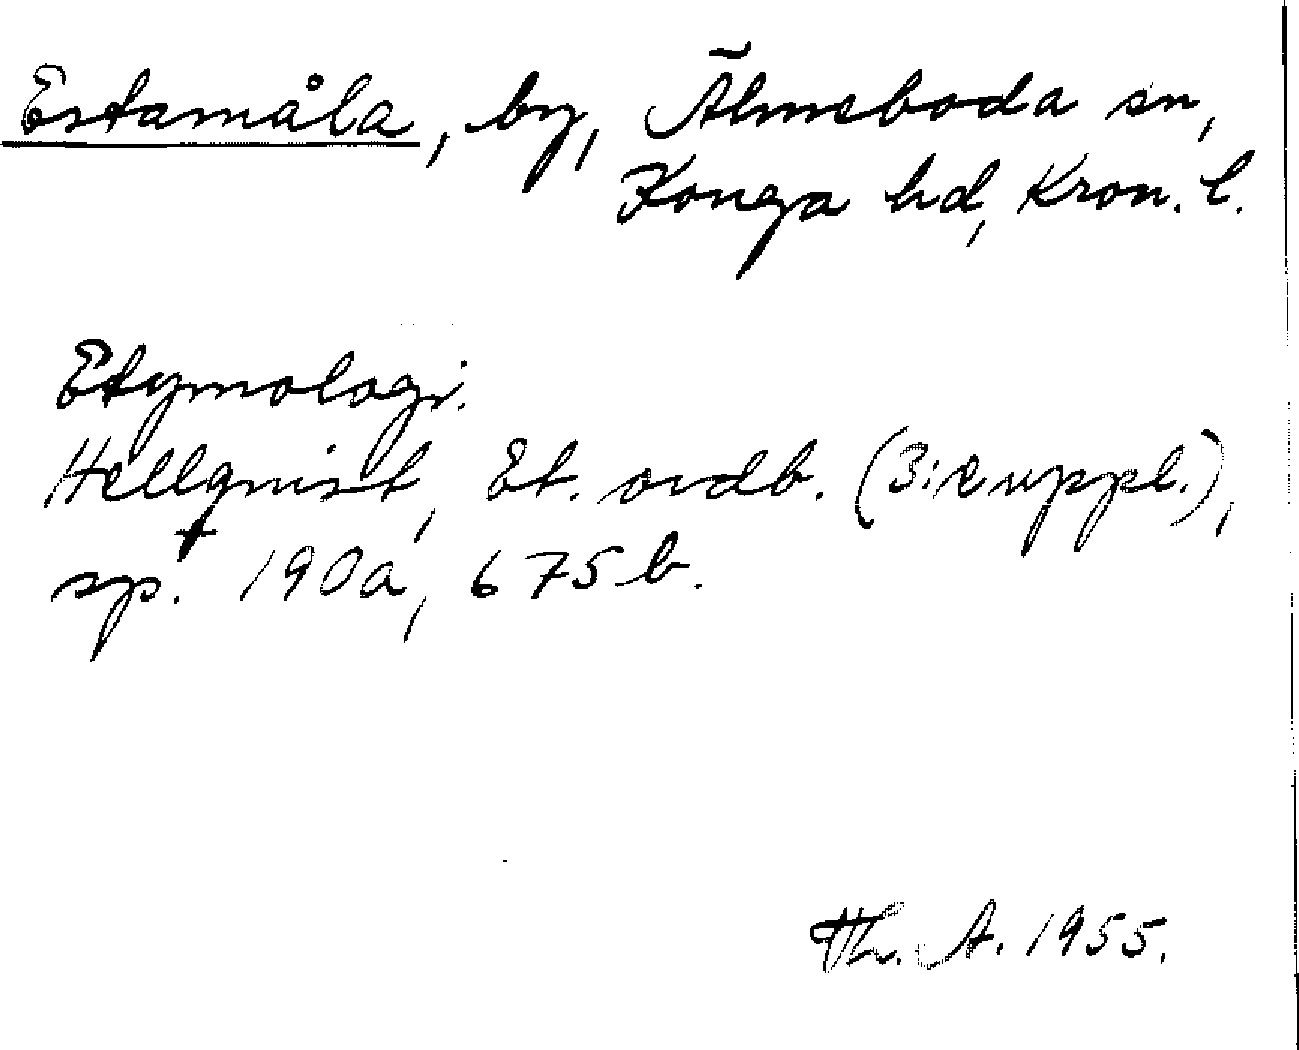 Estamåla, by, Älmeboda sn,
Konga hd, Kron. l.
Etymologi.
Hellquist, Et. ordb. (3:e uppl.),
sp. 190a, 675b.
Th. A. 1955.